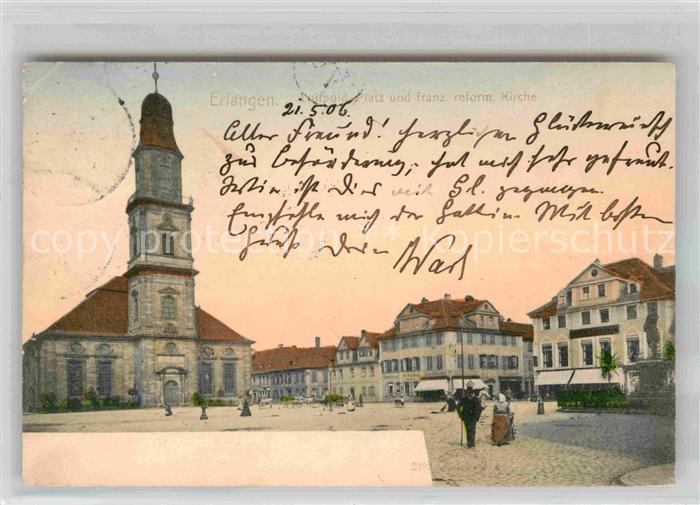 Erlangen. Luitpold-Platz und franz. reform. Kirche.
21.5.06.
Alter Freund! herzlichen Glückwunsch
zur Beförderung, hat mich sehr gefreut.
ist dies mit Gl. gegangen.
Empfehle mich der Gattin. Mit besten
Gruß Dein Karl
copyright protection Kopierschutz